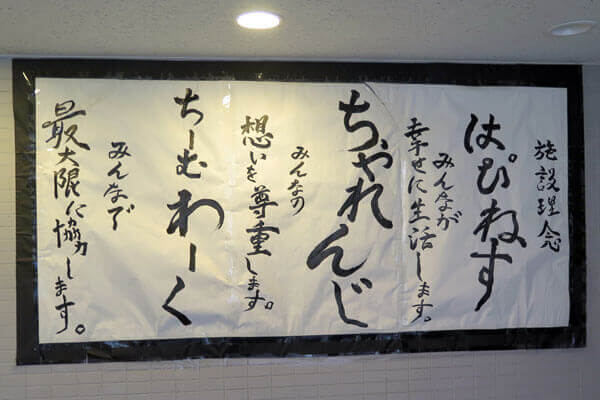 施設理念
はぴねす
みんなが
幸せに生活します。
ちゃれんじ
みんなの
想いを尊重します。
ちーむわーく
みんなで
最大限に協力します。